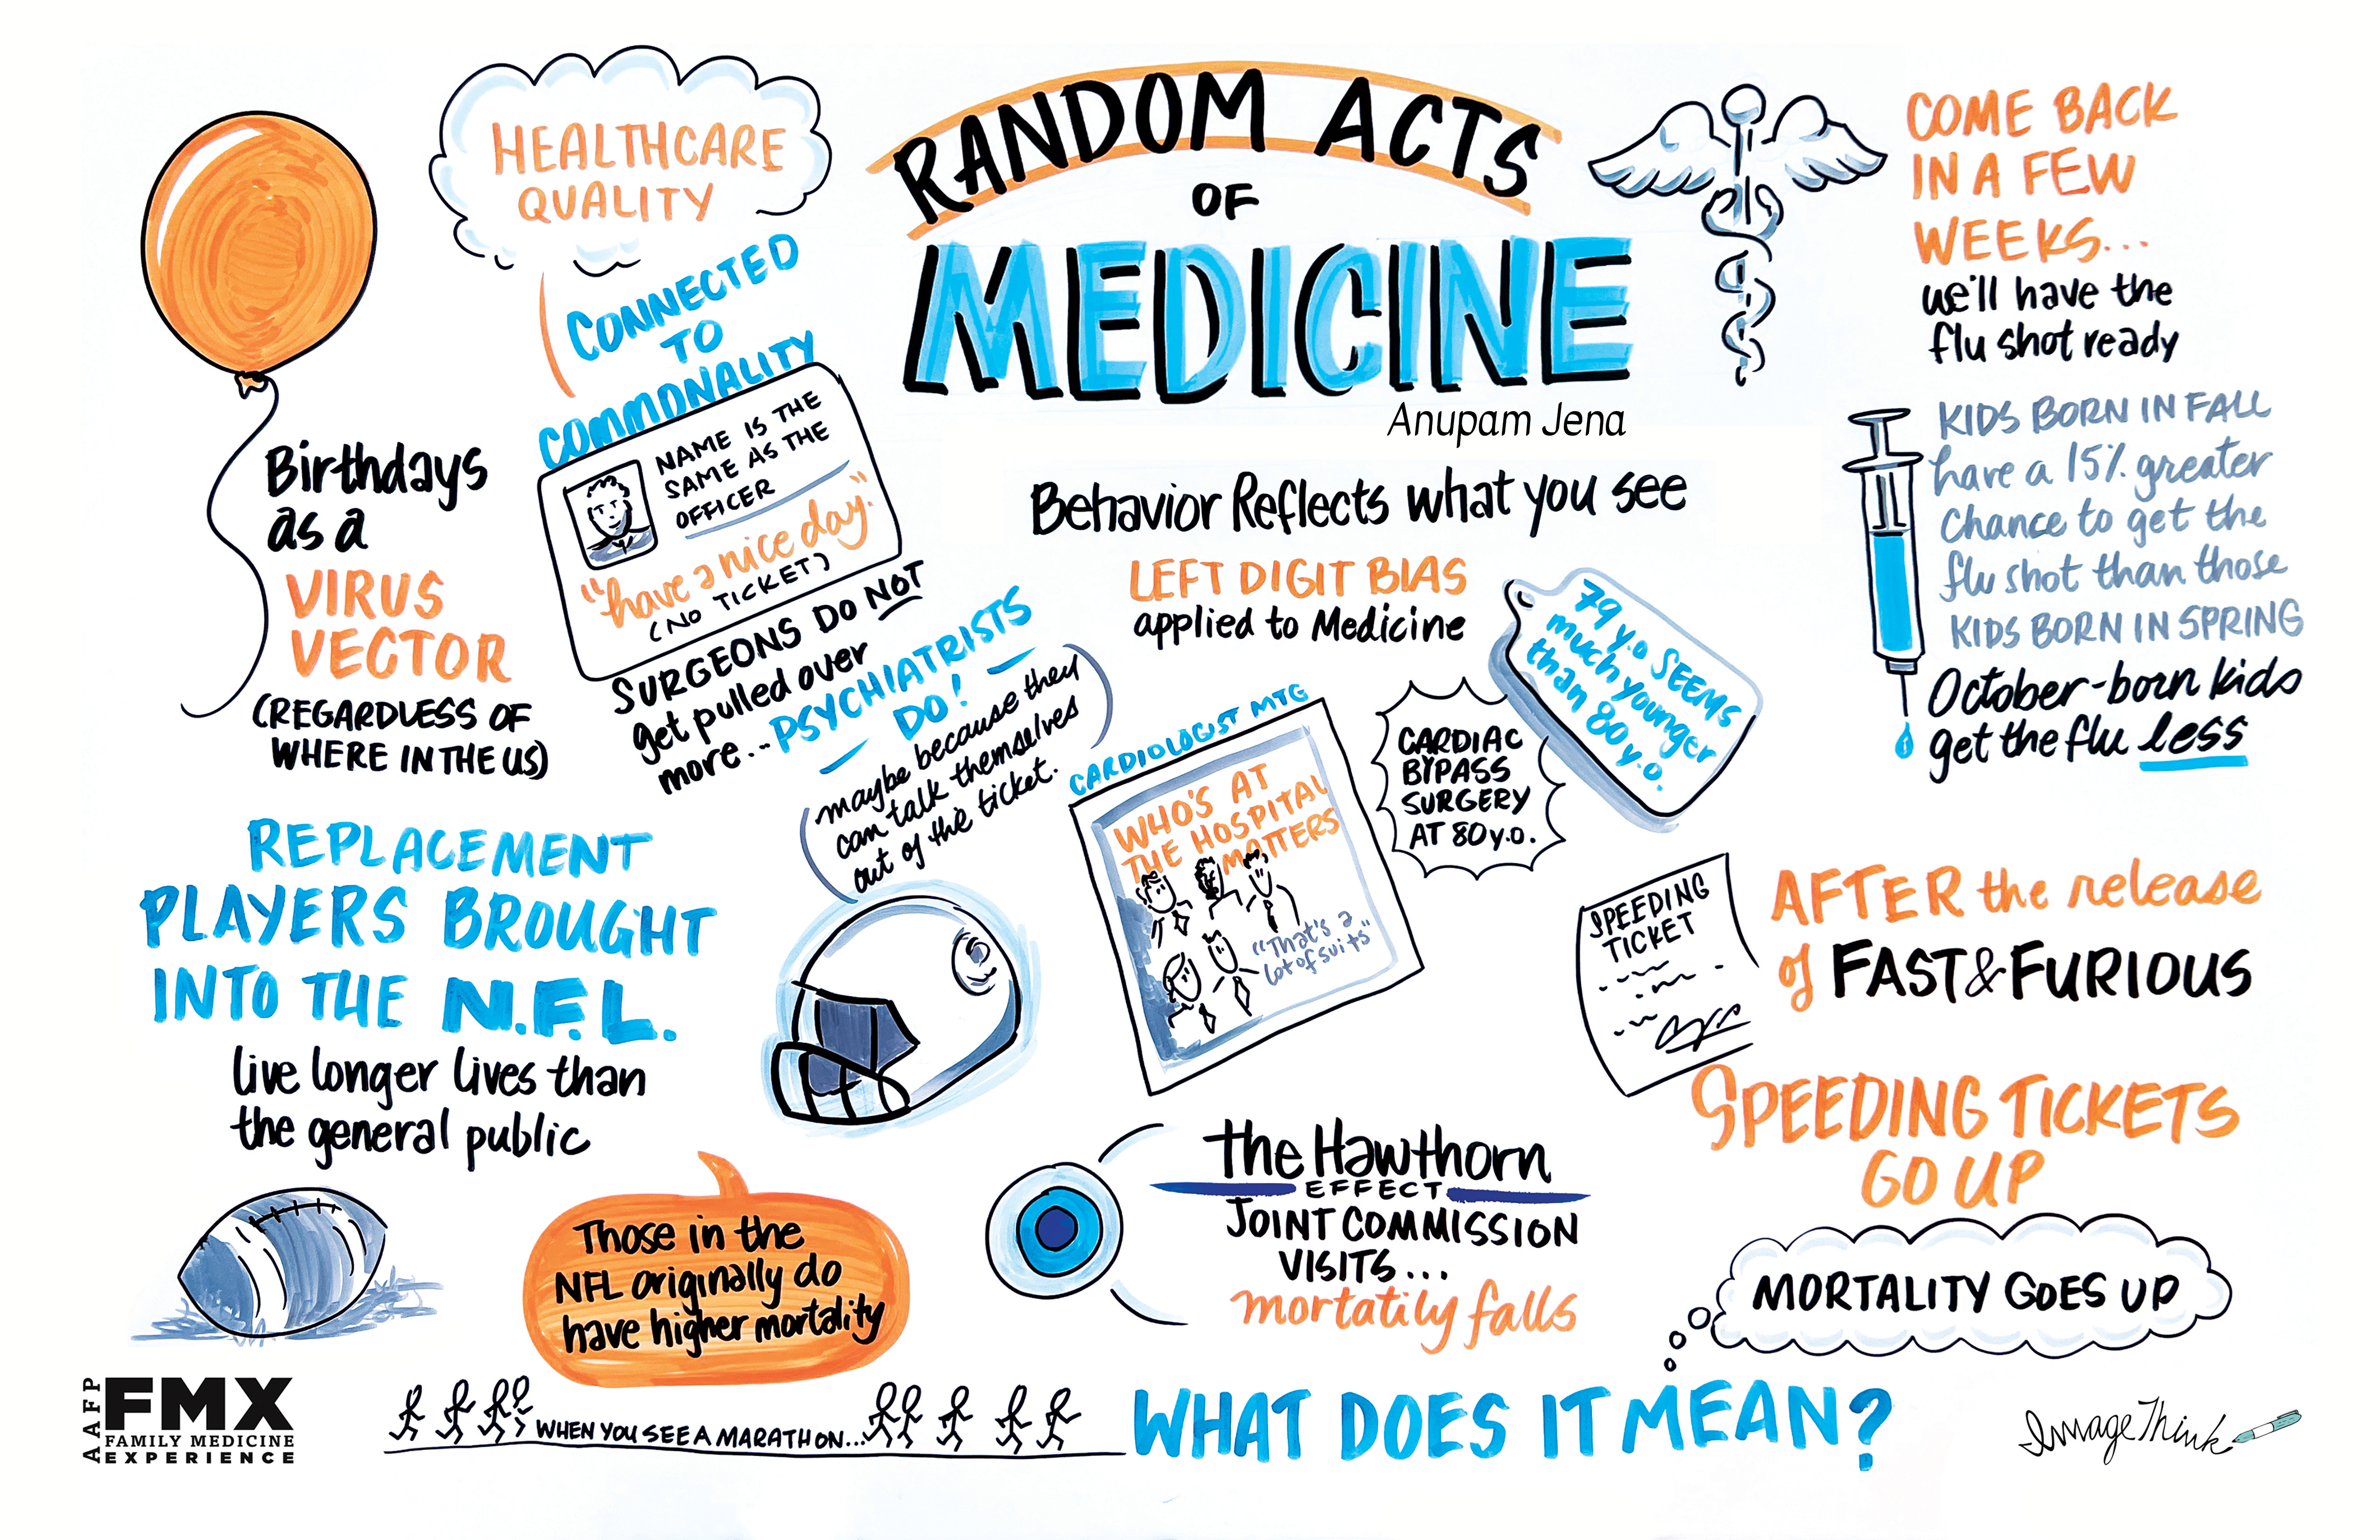 RANDOM ACTS
OF
MEDICINE
Anupam Jena
HEALTHCARE
QUALITY
CONNECTED
TO
COMMONALITY
NAME IS THE
SAME AS THE
OFFICER
"have a nice day."
(NO TICKET)
SURGEONS DO NOT
get pulled over
more... PSYCHIATRISTS
DO!
maybe because they
can talk themselves
out of the ticket.
Birthdays
as a
VIRUS
VECTOR
(REGARDLESS OF
WHERE IN THE US)
Behavior Reflects what you see
LEFT DIGIT BIAS
applied to Medicine
79 y.o SEEMS
much younger
than 80 y.o.
CARDIAC
BYPASS
SURGERY
AT 80 y.o.
CARDIOLOGIST MTG
WHO'S AT
THE HOSPITAL
MATTERS
"That's a
lot of suits"
COME BACK
IN A FEW
WEEKS...
we'll have the
flu shot ready
KIDS BORN IN FALL
have a 15% greater
chance to get the
flu shot than those
KIDS BORN IN SPRING
October-born kids
get the flu less
REPLACEMENT
PLAYERS BROUGHT
INTO THE N.F.L.
live longer lives than
the general public
Those in the
NFL originally do
have higher mortality
the Hawthorn
EFFECT
JOINT COMMISSION
VISITS...
mortatily falls
SPEEDING
TICKET
AFTER the release
of FAST & FURIOUS
SPEEDING TICKETS
GO UP
MORTALITY GOES UP
WHEN YOU SEE A MARATHON...
WHAT DOES IT MEAN?
AAFP
FMX
FAMILY MEDICINE
EXPERIENCE
ImageThink